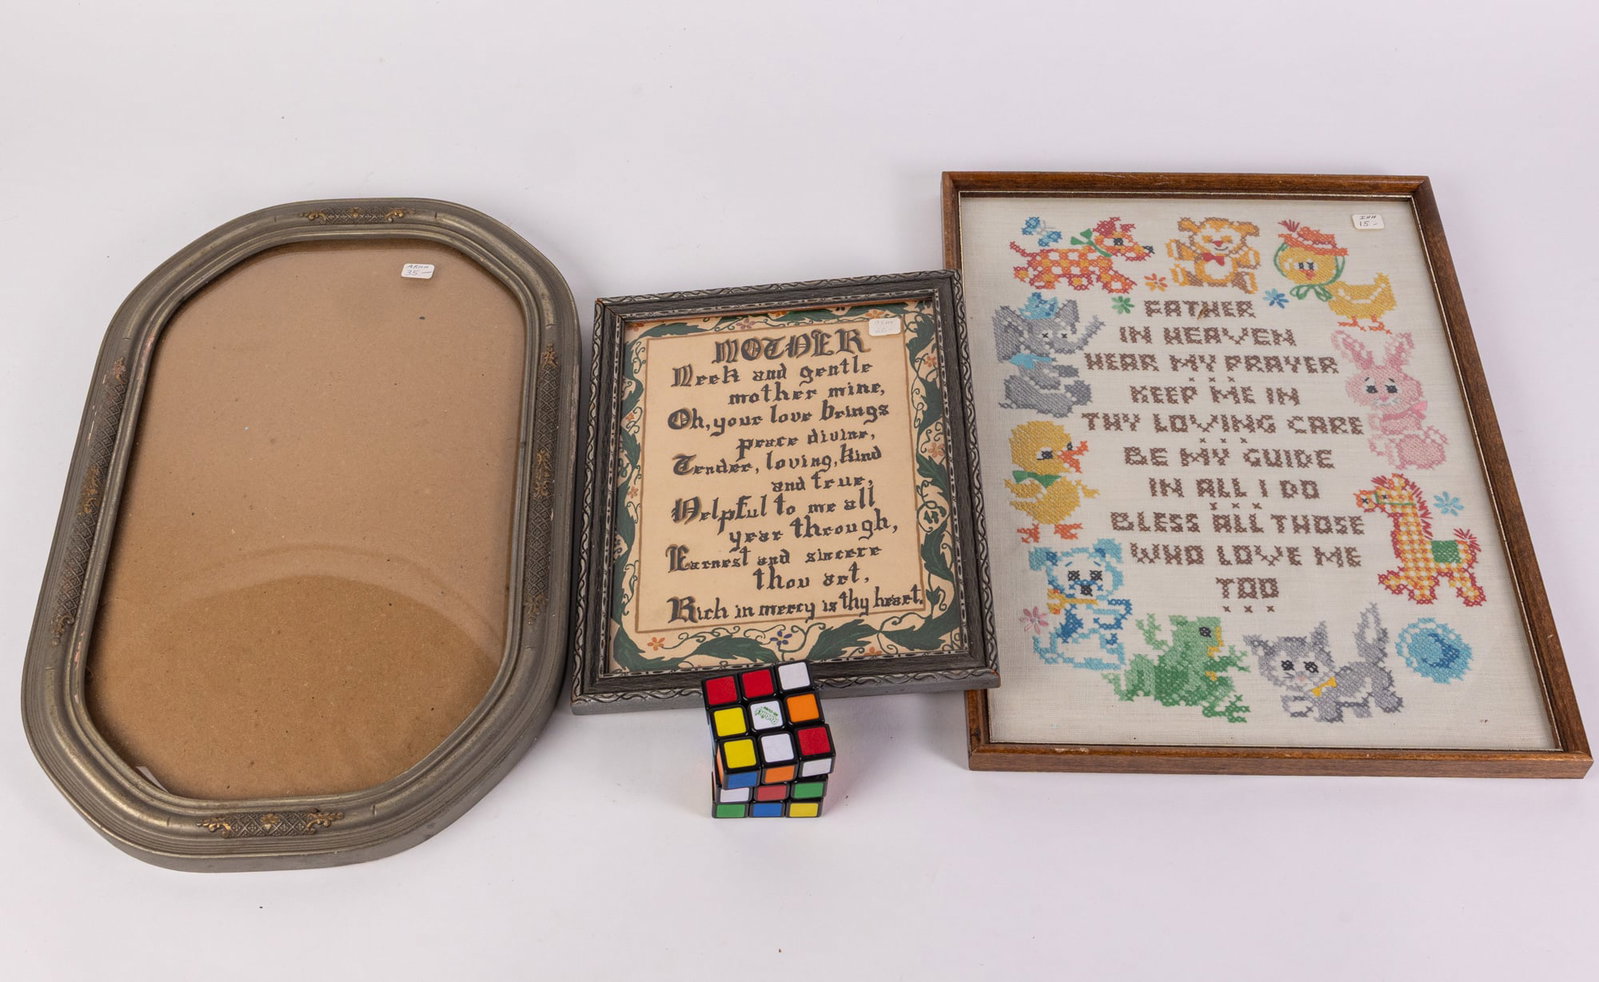 35—
MOTHER
Meek and gentle
mother mine,
Oh, your love brings
peace divine,
Tender, loving, kind
and true,
Helpful to me all
year through,
Earnest and sincere
thou art,
Rich in mercy is thy heart.
15—
FATHER
IN HEAVEN
HEAR MY PRAYER
KEEP ME IN
THY LOVING CARE
BE MY GUIDE
IN ALL I DO
BLESS ALL THOSE
WHO LOVE ME
TOO